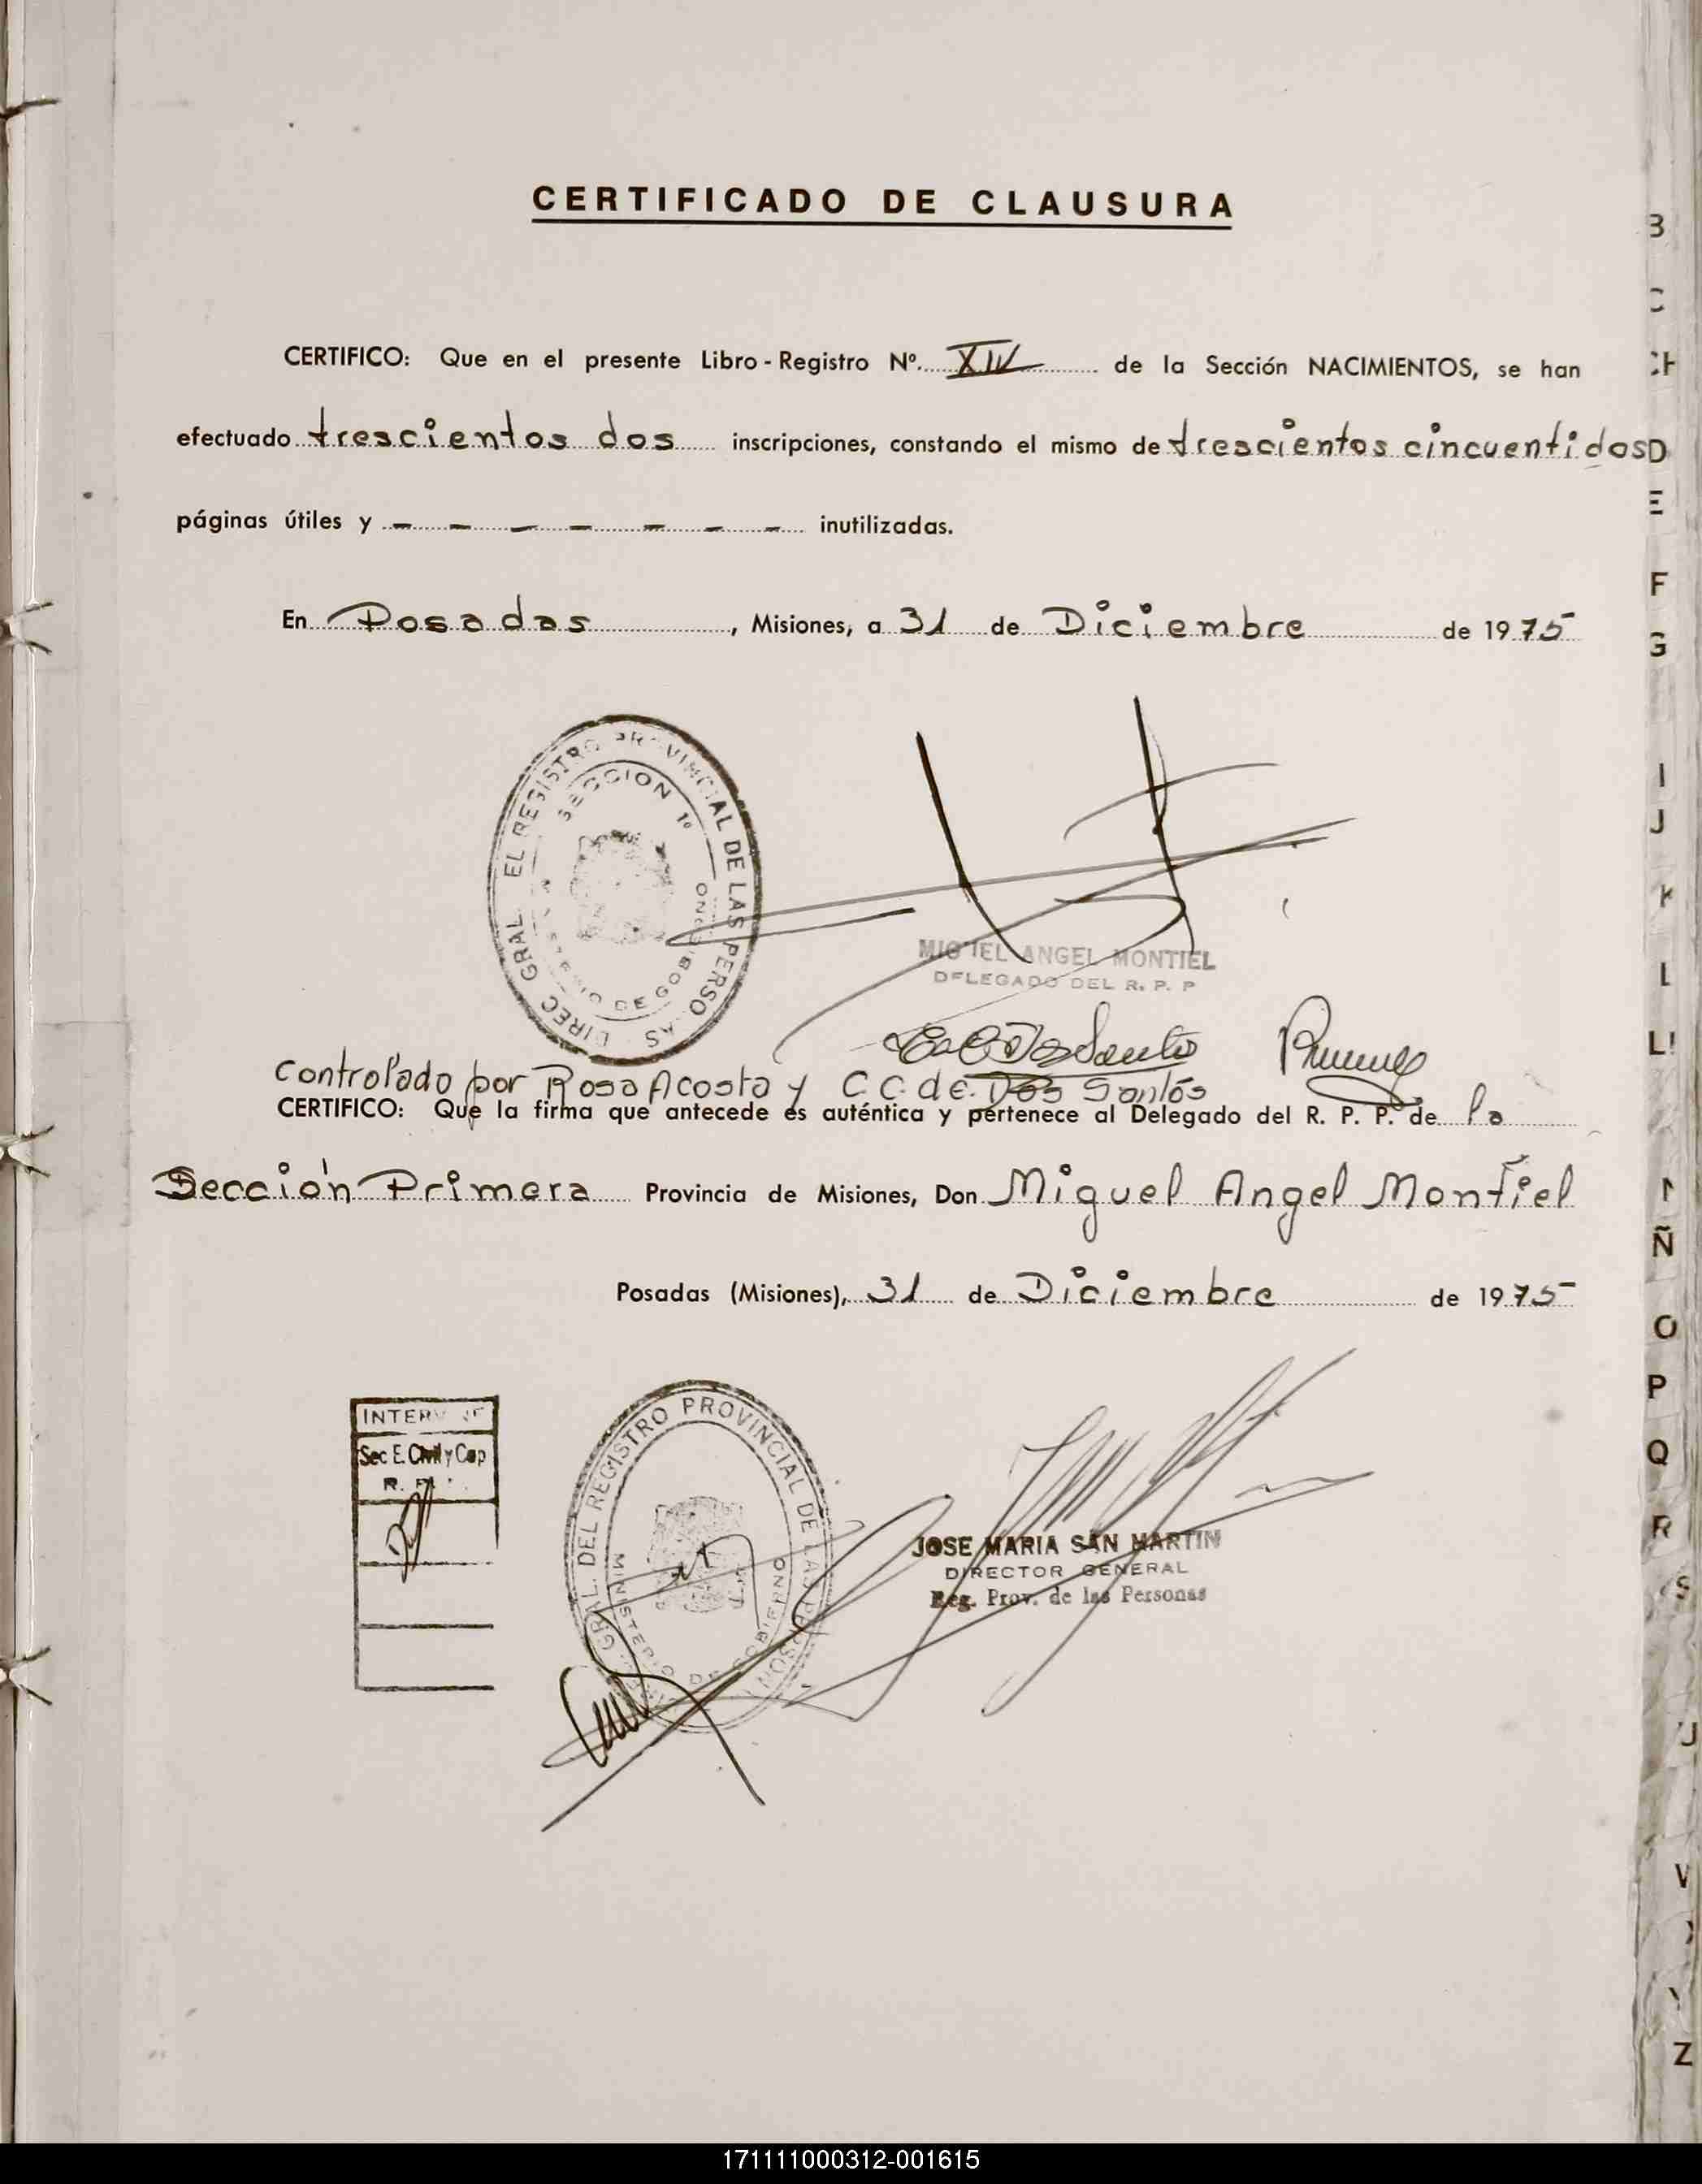 CERTIFICADO DE CLAUSURA
CERTIFICO: Que en el presente Libro-Registro Nº. XIV de la Sección NACIMIENTOS, se han
efectuado trescientos dos inscripciones, constando el mismo de trescientos cincuentidos
páginas útiles y - - - - - - - inutilizadas.
En Posadas, Misiones, a 31 de Diciembre de 1975
DIREC GRAL. EL REGISTRO PROVINCIAL DE LAS PERSO AS
SECCION 1º
DE GOBIERNO
MIGUEL ANGEL MONTIEL
DELEGADO DEL R. P. P
Controlado por Rosa Acosta y C.C. de Dos Santos
CERTIFICO: Que la firma que antecede es auténtica y pertenece al Delegado del R. P. P. de la
Sección Primera Provincia de Misiones, Don Miguel Angel Montiel
Posadas (Misiones), 31 de Diciembre de 1975
INTERVINE
Sec E. Civil y Cap
GRAL. DEL REGISTRO PROVINCIAL DE LAS PERSONAS
MINISTERIO DE GOBIERNO
JOSE MARIA SAN MARTIN
DIRECTOR GENERAL
Reg. Prov. de las Personas
B
C
CH
D
E
F
G
I
J
K
L
LL
Ñ
O
P
Q
R
S
U
V
Z
171111000312-001615